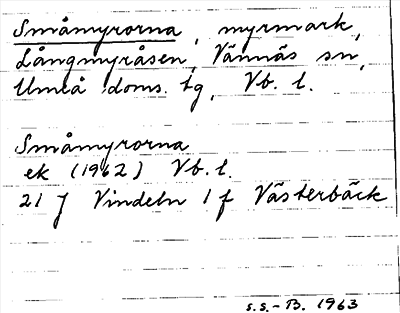 Småmyrorna, myrmark,
Långmyråsen, Vännäs sn,
Umeå doms. tg, Vb. l.
Småmyrorna
ek (1962) Vb. l.
21 J Vindeln 1 f Västerbäck
S.S.-B. 1963